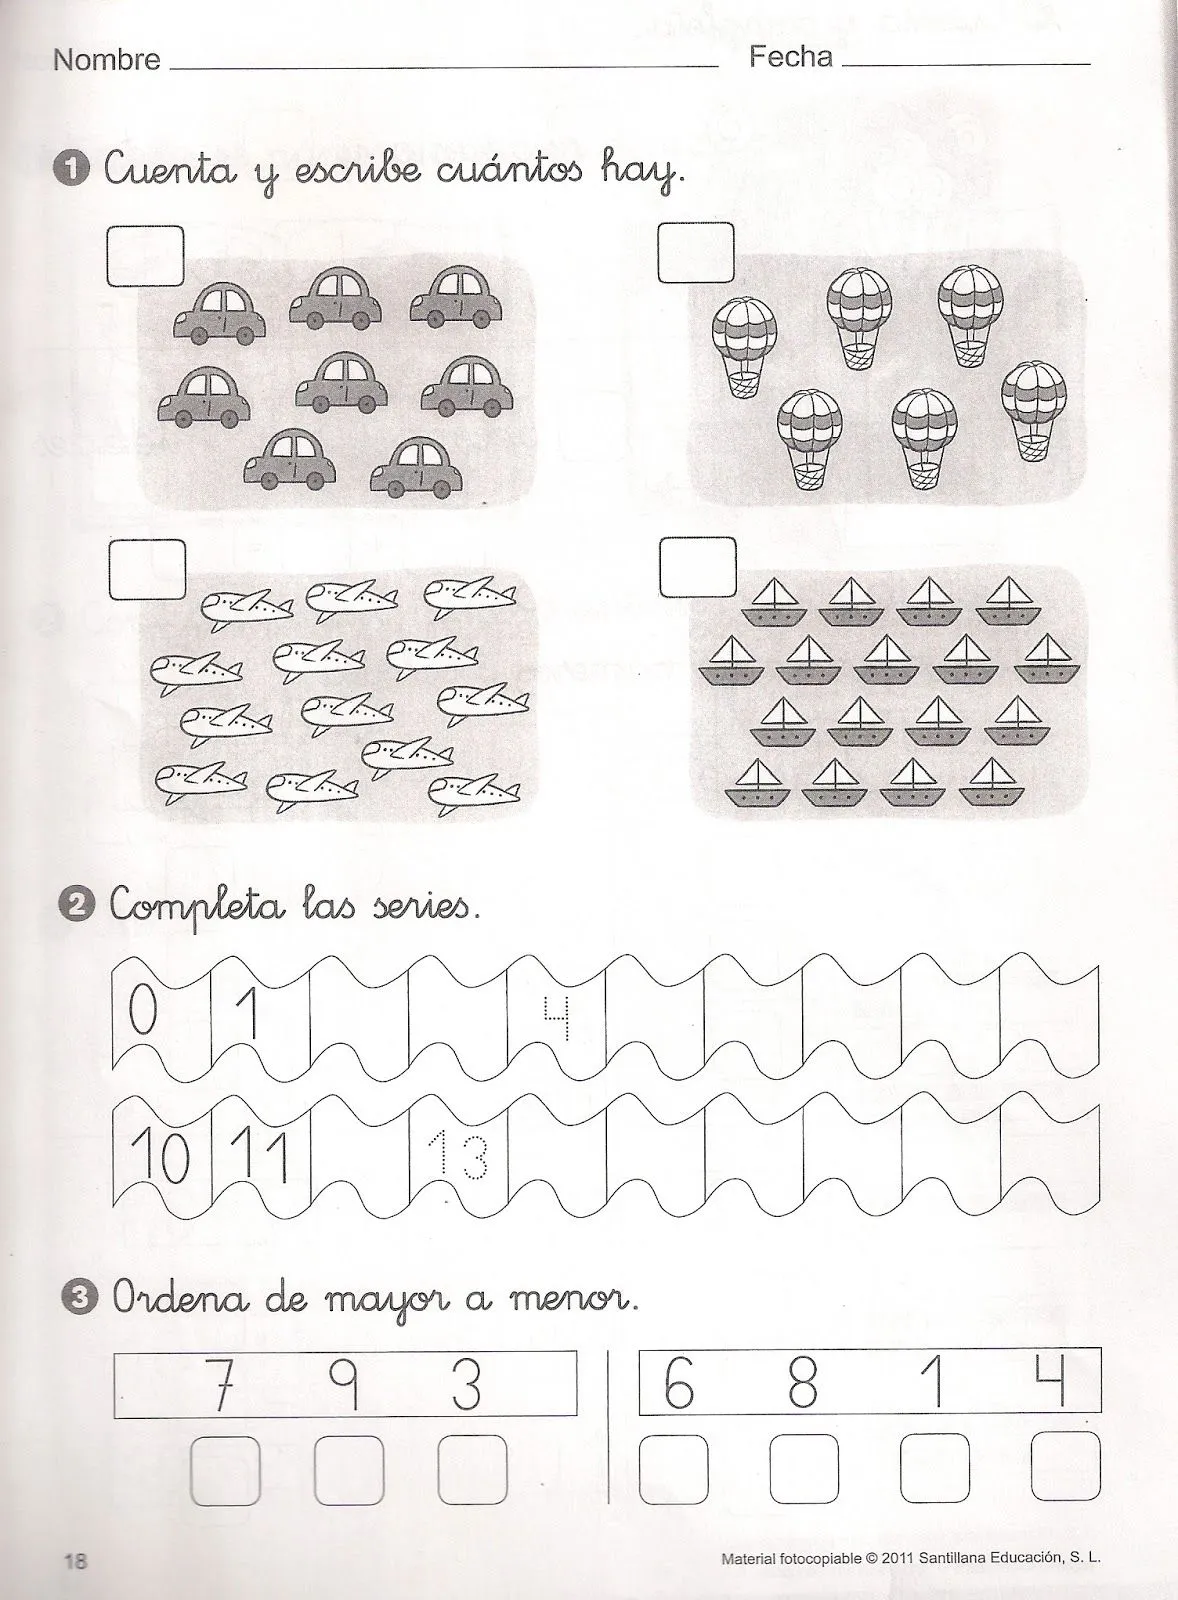 Nombre Fecha
1 Cuenta y escribe cuántos hay.
2 Completa las series.
0 1 4
10 11 13
3 Ordena de mayor a menor.
7 9 3 6 8 1 4
18 Material fotocopiable © 2011 Santillana Educación, S. L.